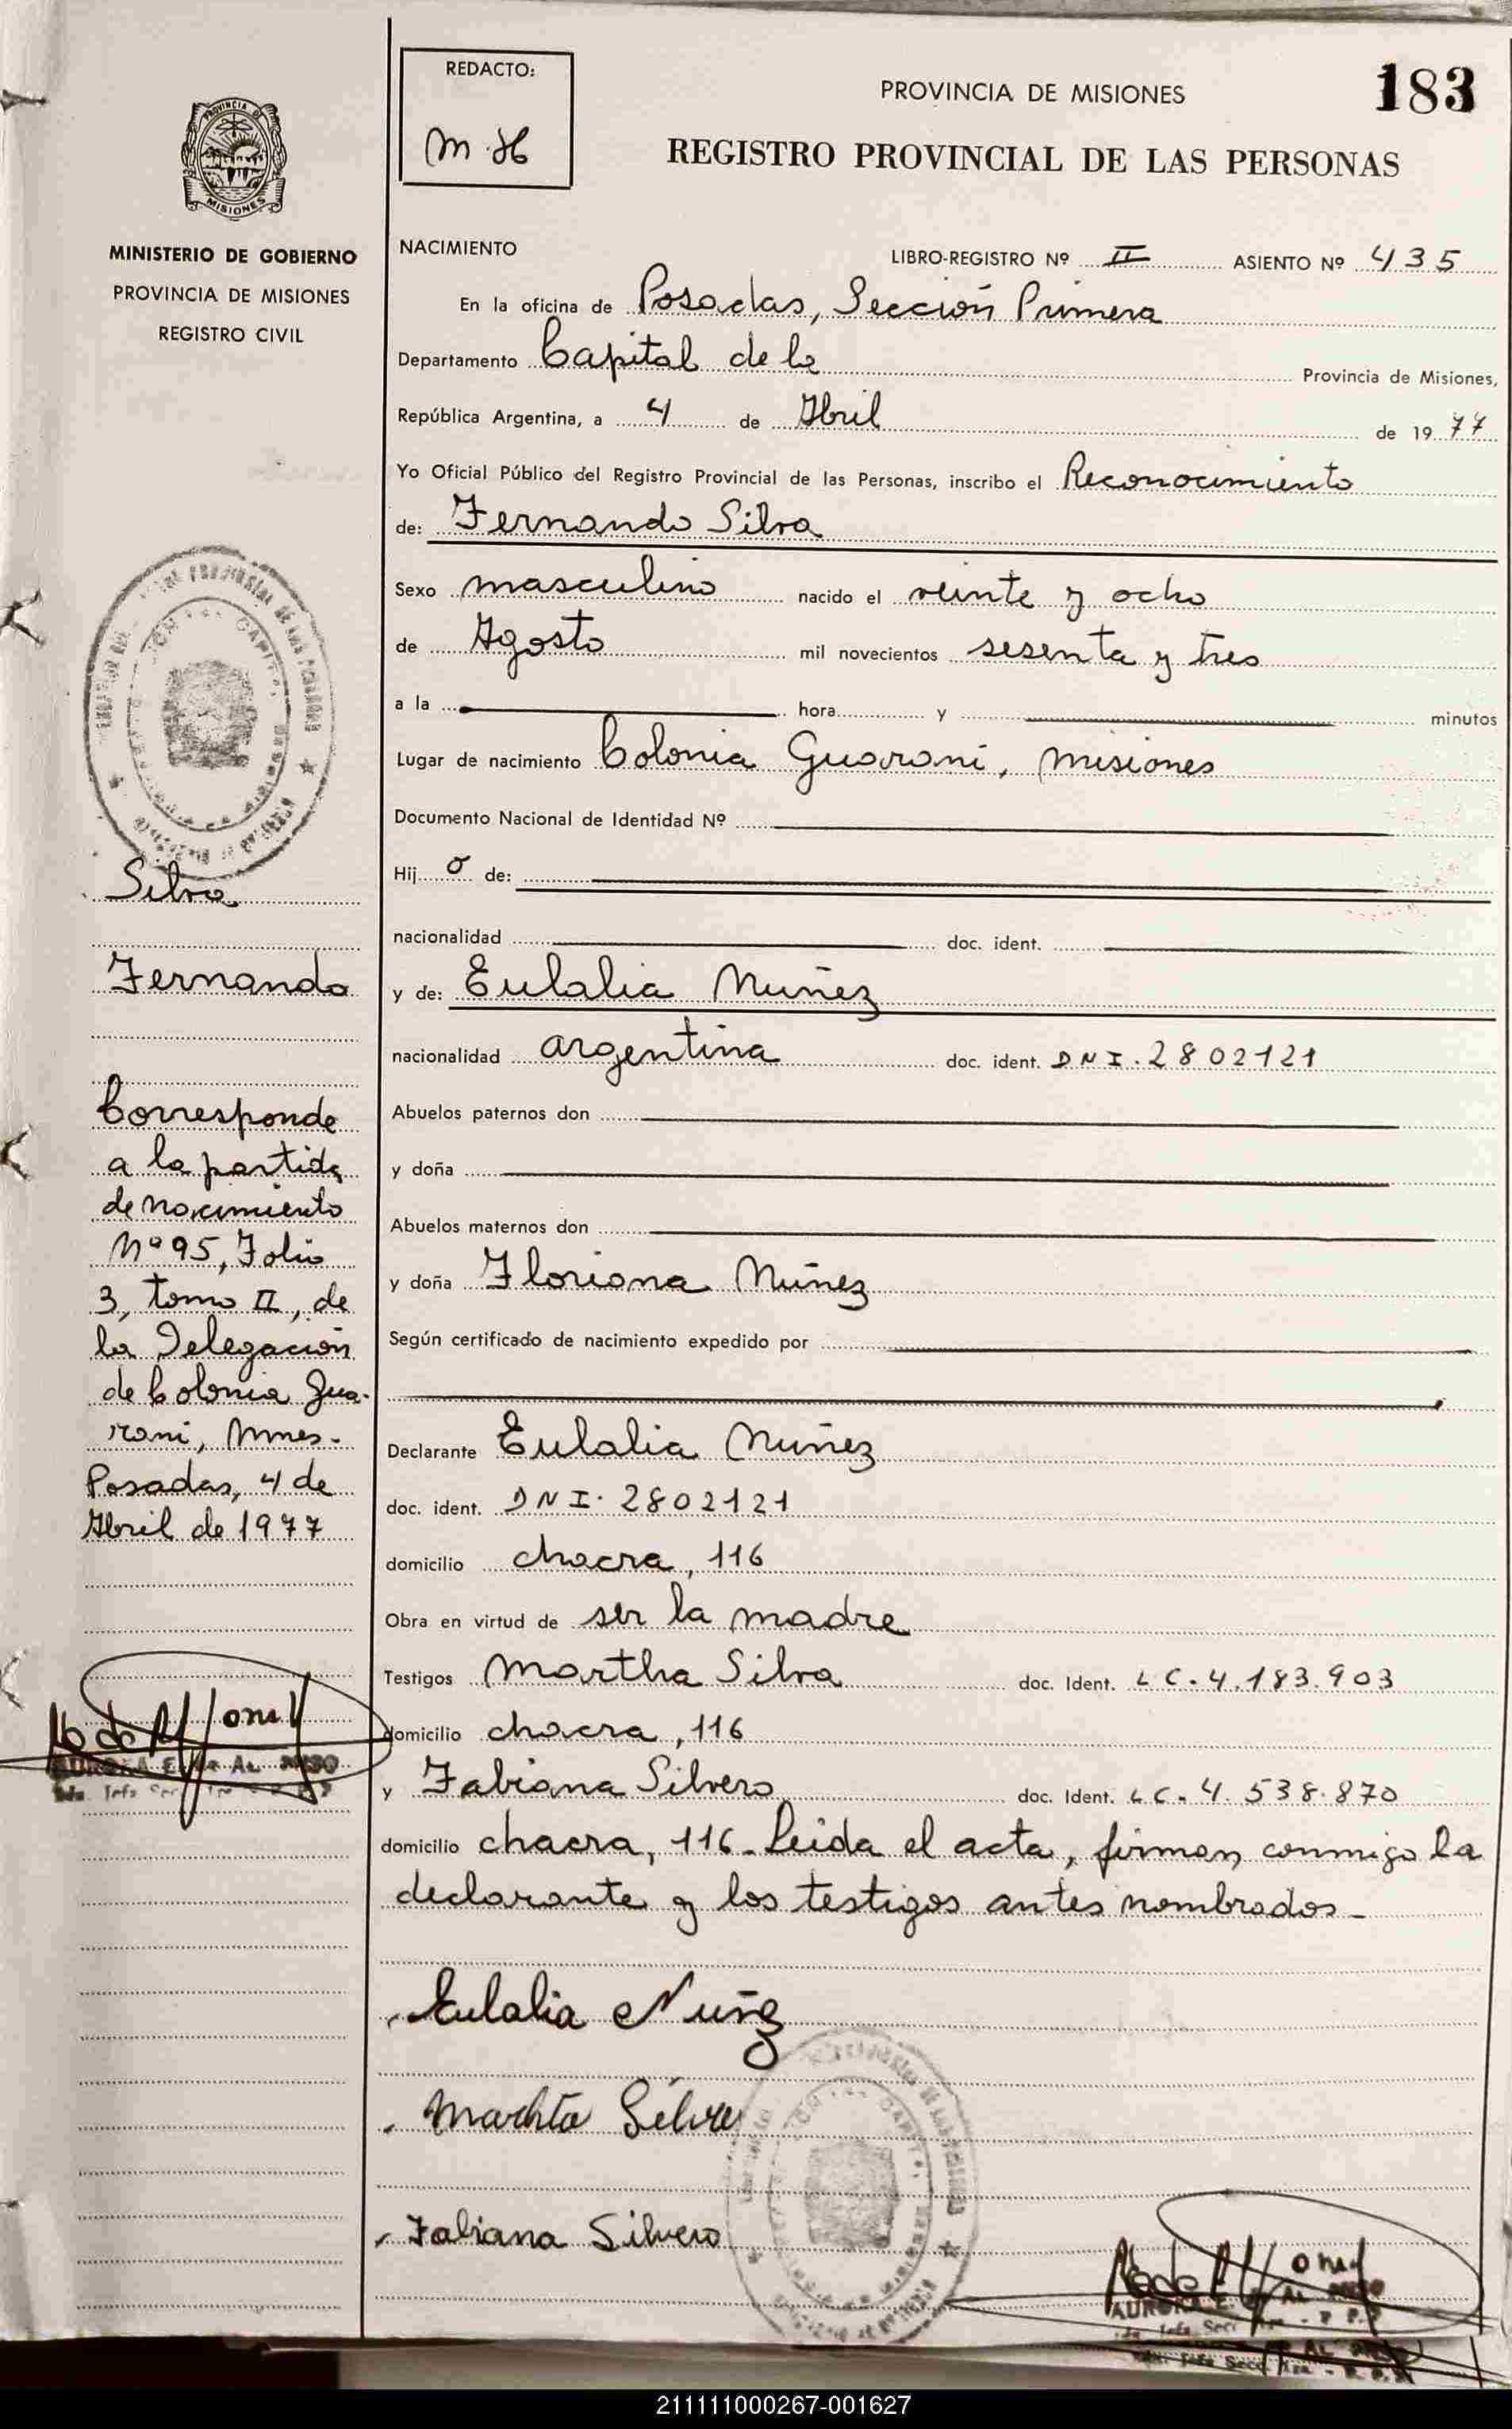 REDACTO:
M.H
PROVINCIA DE MISIONES
183
REGISTRO PROVINCIAL DE LAS PERSONAS
PROVINCIA DE
MISIONES
MINISTERIO DE GOBIERNO
PROVINCIA DE MISIONES
REGISTRO CIVIL
NACIMIENTO
LIBRO-REGISTRO Nº II ASIENTO Nº 435
En la oficina de Posadas, Sección Primera
Departamento Capital de la Provincia de Misiones,
República Argentina, a 4 de Abril de 1977
Yo Oficial Público del Registro Provincial de las Personas, inscribo el Reconocimiento
de: Fernando Silva
Sexo masculino nacido el veinte y ocho
de Agosto mil novecientos sesenta y tres
a la hora y minutos
Lugar de nacimiento Colonia Guaraní, Misiones
Documento Nacional de Identidad Nº
Hijo de:
nacionalidad doc. ident.
y de: Eulalia Nuñez
nacionalidad argentina doc. ident. DNI. 2802121
Abuelos paternos don
y doña
Abuelos maternos don
y doña Floriana Nuñez
Según certificado de nacimiento expedido por
Declarante Eulalia Nuñez
doc. ident. DNI. 2802121
domicilio chacra, 116
Obra en virtud de ser la madre
Testigos Martha Silva doc. Ident. LC. 4.183.903
domicilio chacra, 116
y Fabiana Silvero doc. Ident. LC. 4.538.870
domicilio chacra, 116. Leida el acta, firman conmigo la
declarante y los testigos antes nombrados.
Eulalia Nuñez
Martha Silva
Fabiana Silvero
Silva
Fernando
Corresponde
a la partida
de nacimiento
Nº 95, Folio
3, tomo II, de
la Delegación
de Colonia Gua-
raní, Mnes.
Posadas, 4 de
Abril de 1977
211111000267-001627